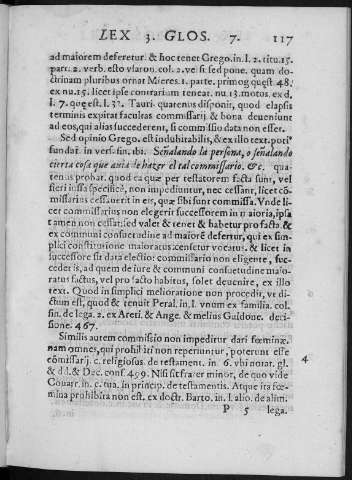 LEX 3. GLOS. 7. 117
ad maiorem deferetur. & hoc tenet Grego. in. l. 2. titu. 15.
part. 2. verb. esto vsaron. col. 2. ve si. sed pone. quam do-
ctrinam pluribus ornat Mieres. 1. parte. primog quæst 48.
ex nu. 15. licet ipse contrarium teneat. nu 13. motus. ex d.
l. 7. quę est. l. 32. Tauri. quatenus disponit, quod elapsis
terminis expirat facultas commissarij. & bona deueniunt
ad eos, qui alias succederent, si commissio data non esset.
Sed opinio Grego. est indubitabilis, & ex illo text. potest
fundari in vers. fin. ibi. Señalando la persona, o señalando
cierta cosa que auia de hazer el tal commissario. &c. qua-
tenus probat. quod ea quæ per testatorem facta sunt, vel
fieri iussa specificè, non impediuntur, nec cessant, licet cō-
missarius cessauerit in eis, quæ sibi sunt commissa. Vnde li-
cet commissarius non elegerit successorem in maioria, ipsa
tamen non cessat, sed valet & tenet & habetur pro facta. &
ex communi consuetudine ad maiorē defertur, qui ex sim-
plici constitutione maioratus censetur vocatus. & licet in
successore sit data electio: commissario non eligente, suc-
cedet is, ad quem de iure & communi consuetudine maio-
ratus factus, vel pro facto habitus, solet deuenire, ex illo
text. Quod in simplici melioratione non procedit, vt di-
ctum est, quod & tenuit Peral. in. l. vnum ex familia. col.
fin. de lega. 2. ex Areti. & Ange. & melius Guidoue. deci-
sione. 467.
Similis autem commissio non impeditur dari fœminæ.
nam omnes, qui prohibiti non reperiuntur, poterunt esse
cōmissarij. c. religiosus de testament. in. 6. vbi notat. gl. 4
& d.d. & Dec. cons. 499. Nisi sit frater minor, de quo vide
Couarr. in. c. tua. in princip. de testamentis. Atque ita fœ-
mina prohibita non est. ex doctr. Barto. in. l. alio. de alim.
P 5 lega.